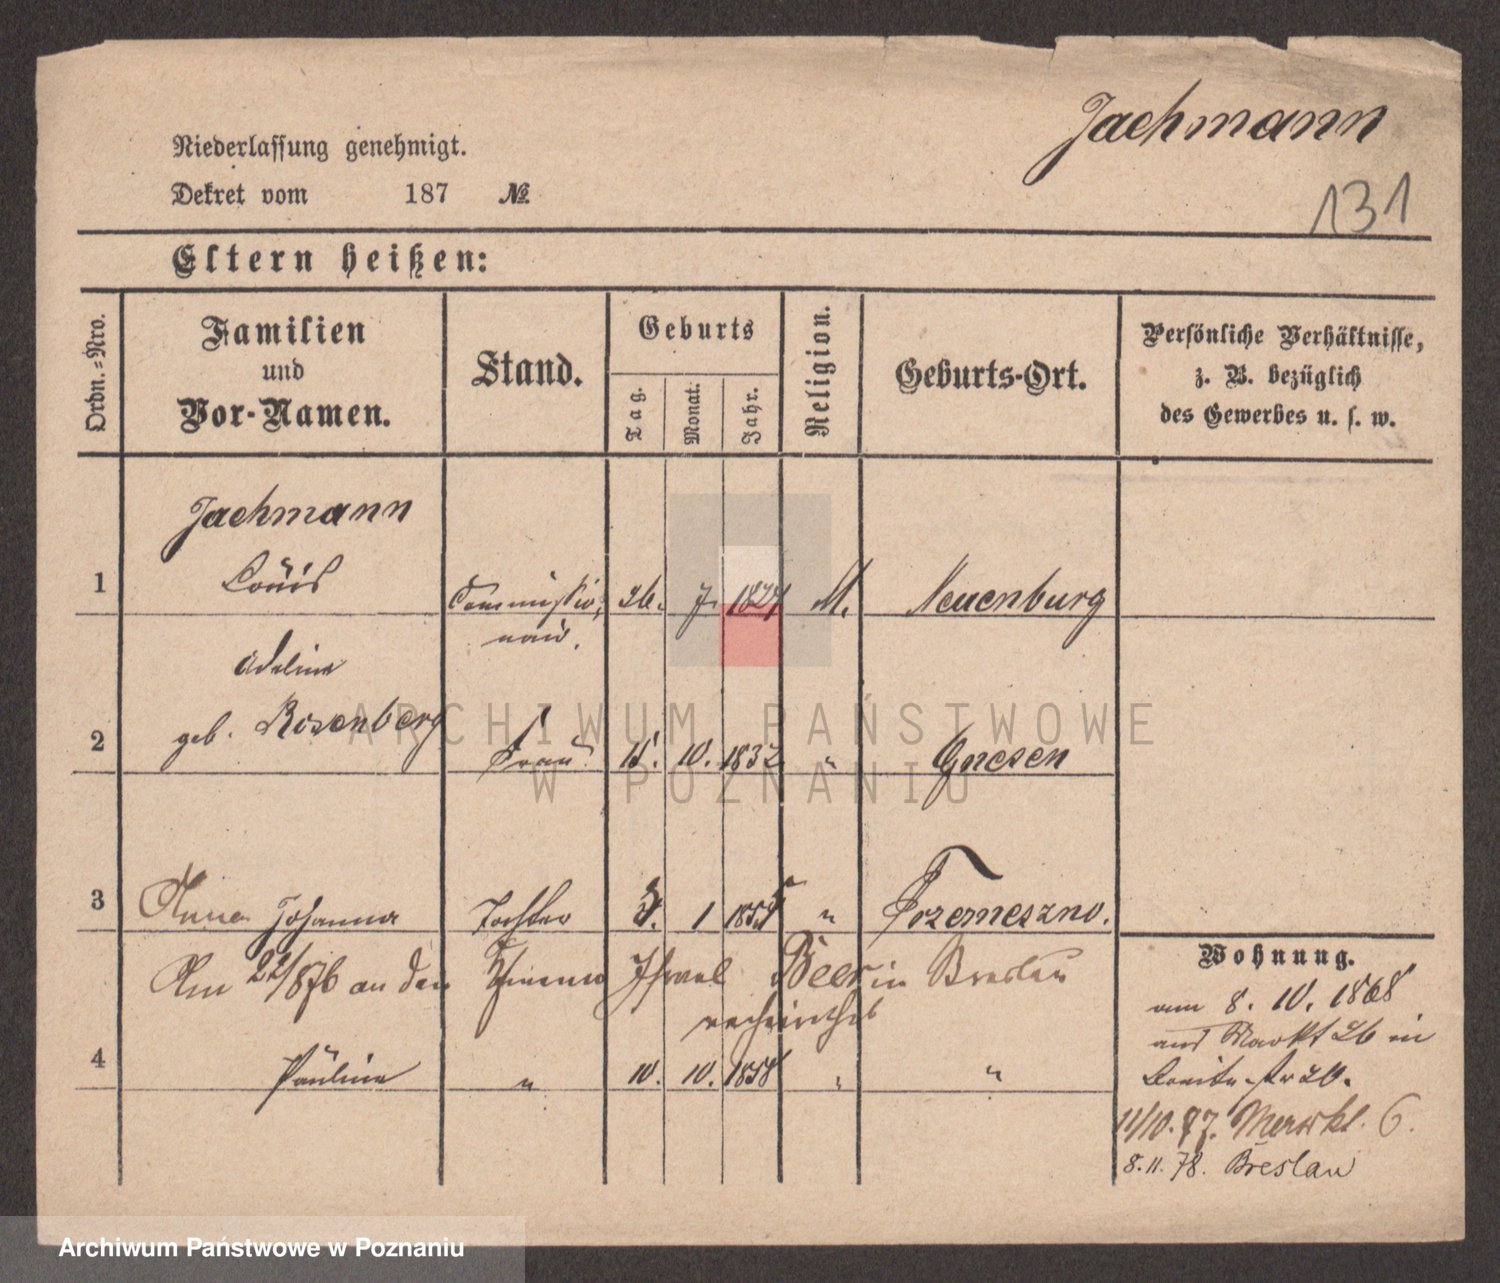 Jachmann
131
Niederlassung genehmigt.
Dekret vom 187 №
Eltern heißen:
Ordn.-Nro.
Familien
und
Vor-Namen.
Stand.
Geburts
Tag.
Monat.
Jahr.
Religion.
Geburts-Ort.
Persönliche Verhältnisse,
z. B. bezüglich
des Gewerbes u. s. w.
Jachmann
1 Louis Commissio- 26. 7. 1827 M. Neuenburg
när.
Adeline
2 geb. Rosenberg Frau 10. 1832 " Gnesen
3 Anna Johanna Tochter 1 " Trzemeszno.
Am an den Israel Beer in Breslau
verheirathet
4 Pauline " 10. 10. 1858 " "
Wohnung.
am 8. 10. 1868
aus Markt 26 in
Breitestr 20.
11/10. 77. Markt. 6.
8. 11. 78. Breslau
ARCHIWUM PAŃSTWOWE
W POZNANIU
Archiwum Państwowe w Poznaniu